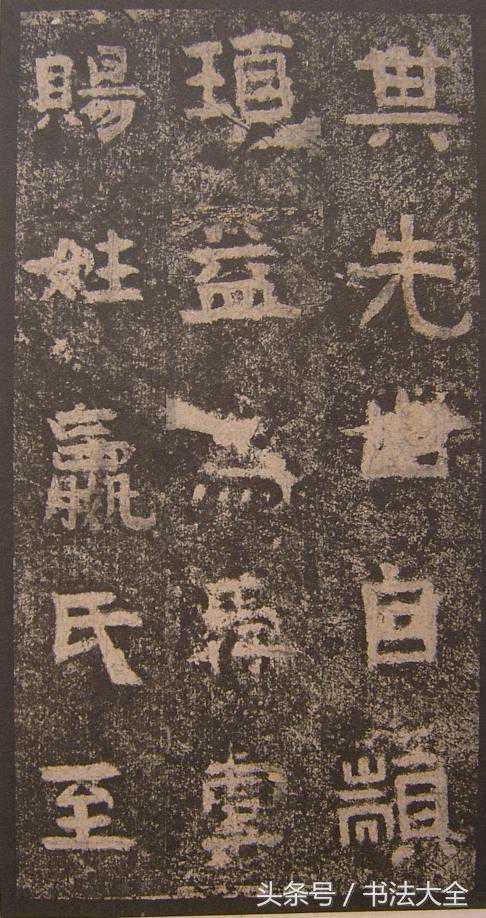 其先世自顓
頊益為舜掌
賜姓嬴氏至
头条号 / 书法大全